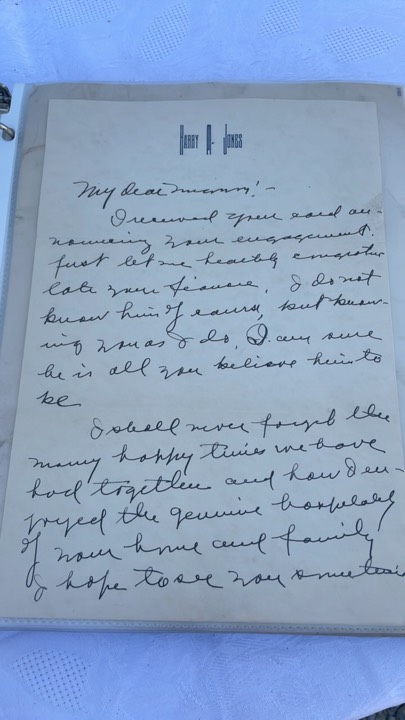 HARRY A. JONES
My dear
I received your card an-
nouncing your engagement.
Just let me heartily congratu
late your fiance. I do not
know him of course, but know-
ing you as I do, I am sure
he is all you believe him to
be
I shall never forget the
many happy times we have
had together and how I en-
joyed the genuine hospitality
of your home and family
I hope to see you sometime